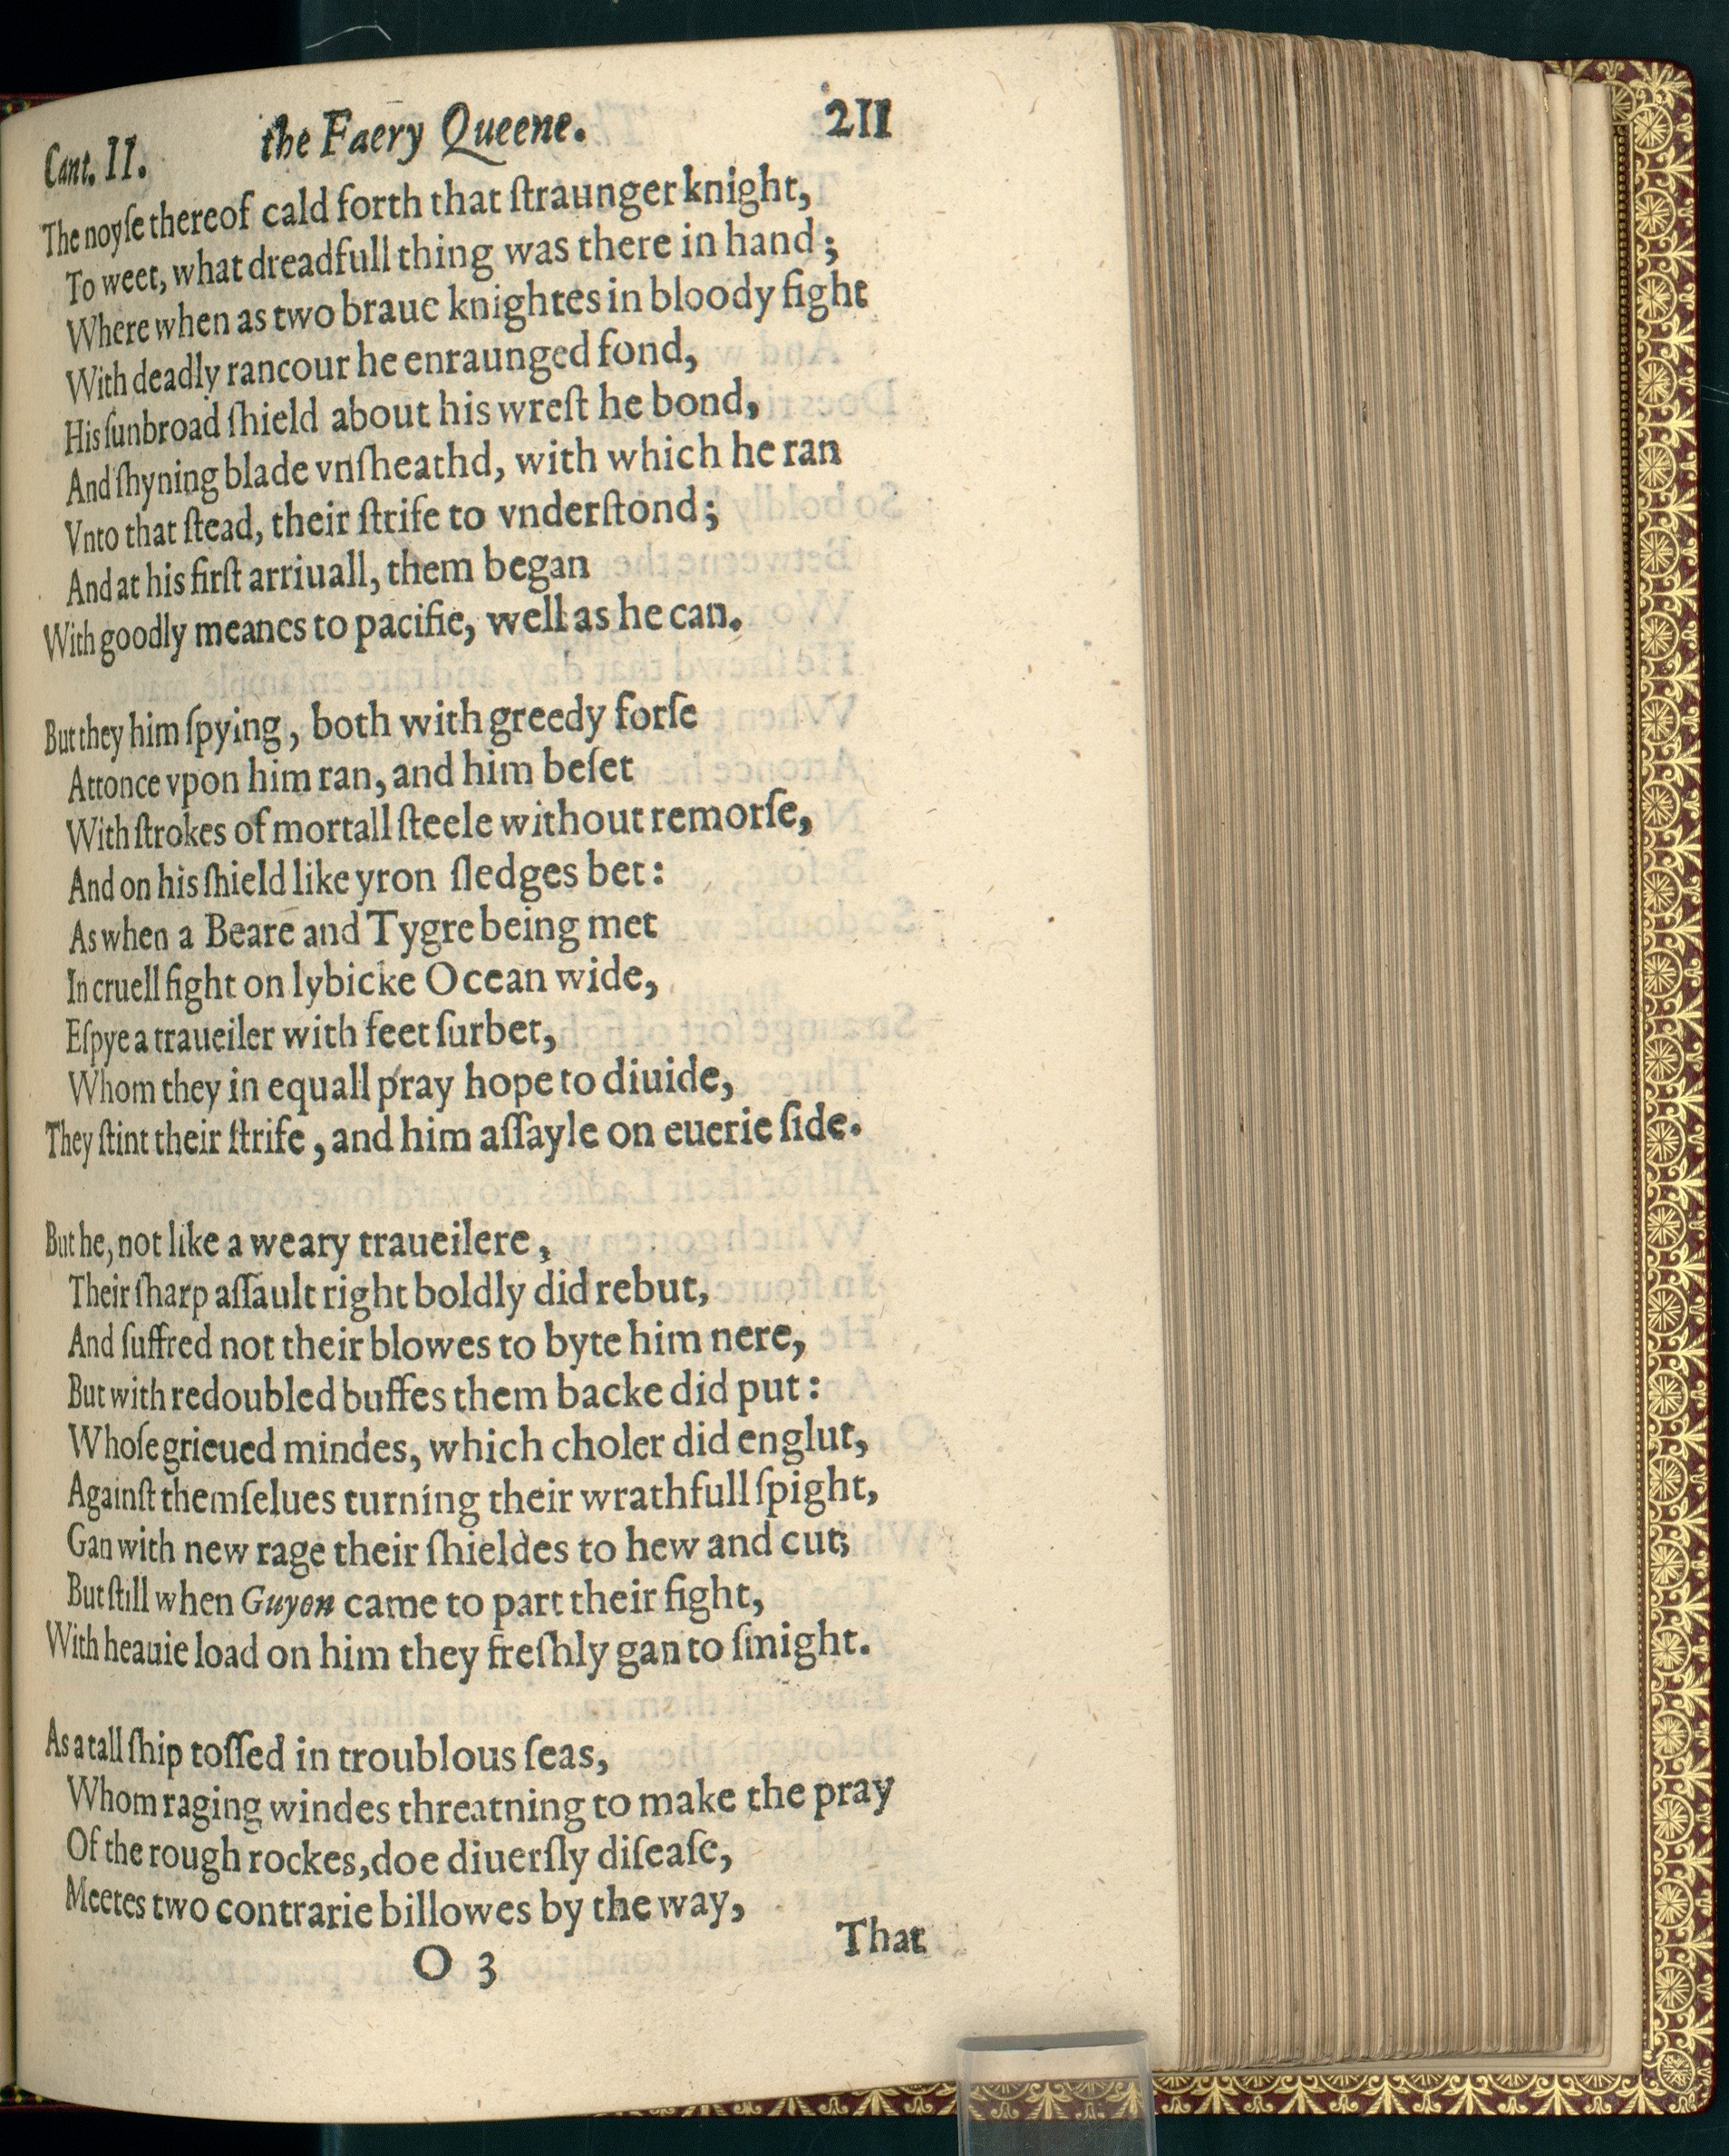 Cant. II. the Faery Queene. 211
The noyſe thereof cald forth that ſtraunger knight,
To weet, what dreadfull thing was there in hand;
Where when as two braue knightes in bloody fight
With deadly rancour he enraunged fond,
His ſunbroad ſhield about his wreſt he bond,
And ſhyning blade vnſheathd, with which he ran
Vnto that ſtead, their ſtrife to vnderſtond;
And at his firſt arriuall, them began
With goodly meanes to pacifie, well as he can.
But they him ſpying, both with greedy forſe
Attonce vpon him ran, and him beſet
With ſtrokes of mortall ſteele without remorſe,
And on his ſhield like yron ſledges bet:
As when a Beare and Tygre being met
In cruell fight on lybicke Ocean wide,
Eſpye a traueiler with feet ſurbet,
Whom they in equall pray hope to diuide,
They ſtint their ſtrife, and him aſſayle on euerie ſide.
But he, not like a weary traueilere,
Their ſharp aſſault right boldly did rebut,
And ſuffred not their blowes to byte him nere,
But with redoubled buffes them backe did put:
Whoſe grieued mindes, which choler did englut,
Againſt themſelues turning their wrathfull ſpight,
Gan with new rage their ſhieldes to hew and cut;
But ſtill when Guyon came to part their fight,
With heauie load on him they freſhly gan to ſmight.
As a tall ſhip toſſed in troublous ſeas,
Whom raging windes threatning to make the pray
Of the rough rockes, doe diuerſly diſeaſe,
Meetes two contrarie billowes by the way,
That
O 3